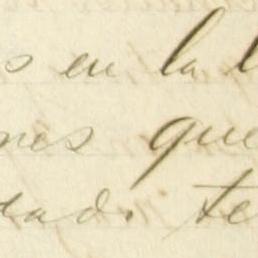 s en la l
nes que
dad. te